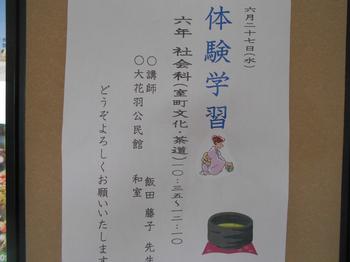 六月二十七日(水)
体験学習
六年 社会科(室町文化・茶道)一〇:三五~一二:一〇
〇講師 飯田 藤子 先生
〇大花羽公民館 和室
どうぞよろしくお願いいたします